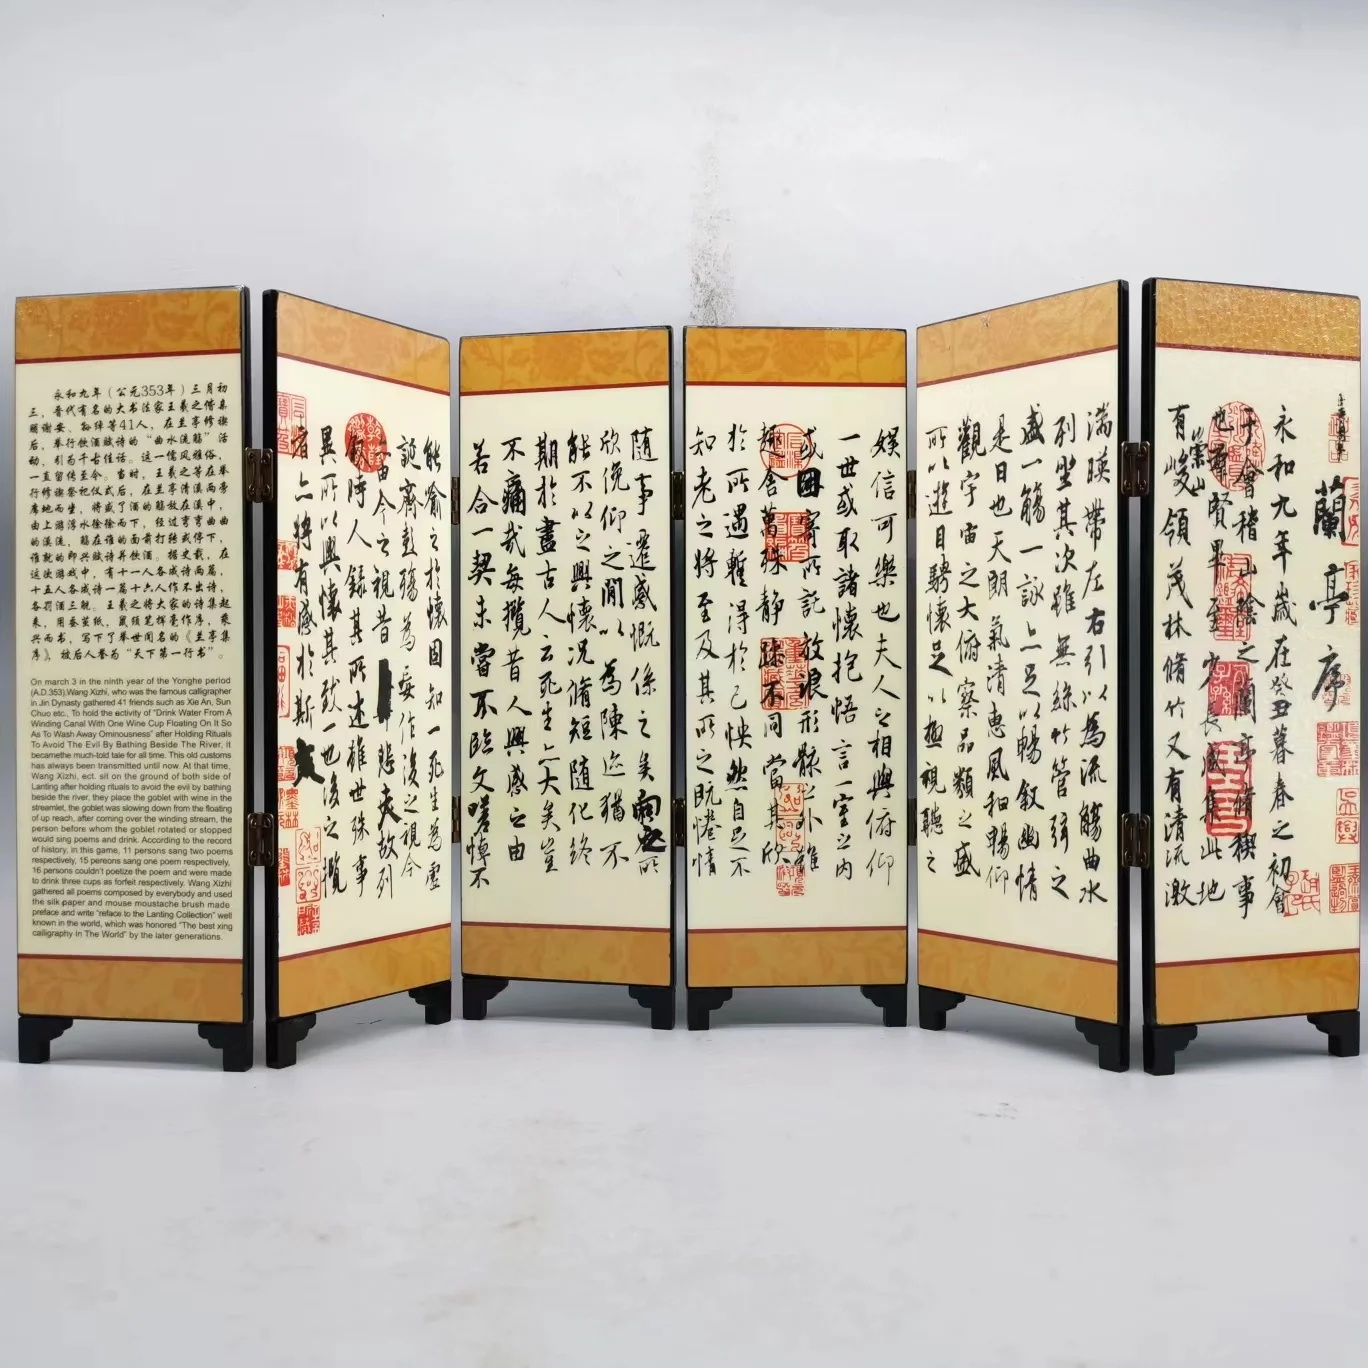 蘭亭序
永和九年歲在癸丑暮春之初會
于會稽山陰之蘭亭脩稧事
也羣賢畢至少長咸集此地
有崇山峻領茂林脩竹又有清流激
湍暎帶左右引以為流觴曲水
列坐其次雖無絲竹管弦之
盛一觴一詠亦足以暢叙幽情
是日也天朗氣清惠風和暢仰
觀宇宙之大俯察品類之盛
所以遊目騁懷足以極視聽之
娛信可樂也夫人之相與俯仰
一世或取諸懷抱悟言一室之内
或因寄所託放浪形骸之外雖
趣舍萬殊靜躁不同當其欣
於所遇暫得於己怏然自足不
知老之將至及其所之既惓情
隨事遷感慨係之矣向之所
欣俛仰之閒以為陳迹猶不
能不以之興懷況脩短隨化終
期於盡古人云死生亦大矣豈
不痛哉每攬昔人興感之由
若合一契未嘗不臨文嗟悼不
能喻之於懷固知一死生為虛
誕齊彭殤為妄作後之視今
亦由今之視昔悲夫故列
叙時人錄其所述雖世殊事
異所以興懷其致一也後之攬
者亦將有感於斯文
永和九年（公元353年）三月初
三，晋代有名的大书法家王羲之偕集
顾谢安、孙绰等41人，在兰亭修禊
后，举行饮酒赋诗的“曲水流觞”活
动，引为千古佳话。这一儒风雅俗，
一直留传至今。当时，王羲之等在举
行修禊祭祀仪式后，在兰亭清溪两旁
席地而坐，将盛了酒的觞放在溪中，
由上游浮水徐徐而下，经过弯弯曲曲
的溪流，觞在谁的面前打转或停下，
谁就的即兴赋诗并饮酒。据史载，在
这次游戏中，有十一人各成诗两篇，
十五人各成诗一篇十六人作不出诗，
各罚酒三觥。王羲之将大家的诗集起
来，用蚕茧纸，鼠须笔挥毫作序，乘
兴而书，写下了举世闻名的《兰亭集
序》，被后人誉为“天下第一行书”。
On march 3 in the ninth year of the Yonghe period
(A.D.353),Wang Xizhi, who was the famous calligrapher
in Jin Dynasty gathered 41 friends such as Xie An, Sun
Chuo etc., To hold the ectivity of "Drink Water From A
Winding Canal With One Wine Cup Floating On It So
As To Wash Away Ominousness" after Holding Rituals
To Avoid The Evil By Bathing Beside The River, It
becamethe much-told tale for all time. This old customs
has always been transmitted until now. At that time,
Wang Xizhi, ect. sit on the ground of both side of
Lanting after holding rituals to avoid the evil by bathing
beside the river, they place the goblet with wine in the
streamlet, the goblet was slowing down from the floating
of up reach, after coming over the winding stream, the
person before whom the goblet rotated or stopped
would sing poems and drink. According to the record
of history, in this game, 11 persons sang two poems
respectively, 15 pereons sang one poem respectively,
16 persons couldn't poetize the poem and were made
to drink three cups as forfeit respectively. Wang Xizhi
gathered all poems composed by everybody and used
the silk paper and mouse moustache brush made
preface and write "reface to the Lanting Collection" well
known in the world, which was honored "The best xing
calligraphy In The World" by the later generations.